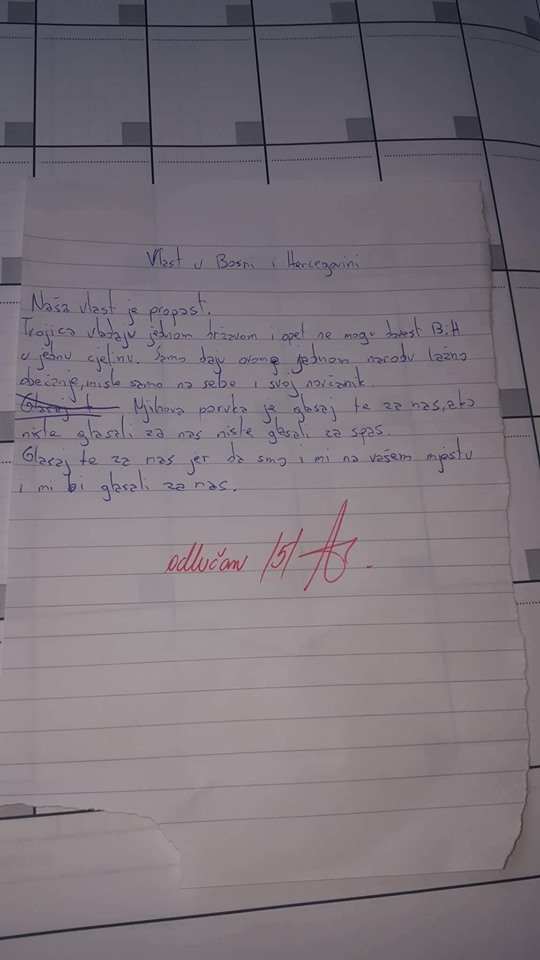 Vlast u Bosni i Hercegovini
Naša vlast je propast.
Trojica vladaju jednom državom i opet ne mogu dovest BiH
u jednu cjelinu. Samo daju ovome jednom narodu lažno
obećanje, misle samo na sebe i svoj novčanik.
Glasaj t Njihova poruka je glasaj te za nas, ako
niste glasali za nas niste glasali za spas.
Glasaj te za nas jer da smo i mi na vašem mjestu
i mi bi glasali za nas.
odlučan /5/